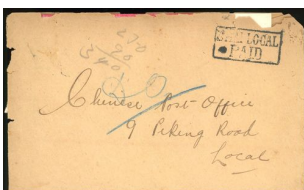 270
90
340
LOCAL
PAID
Chinese Post Office
9 Peking Road
Local